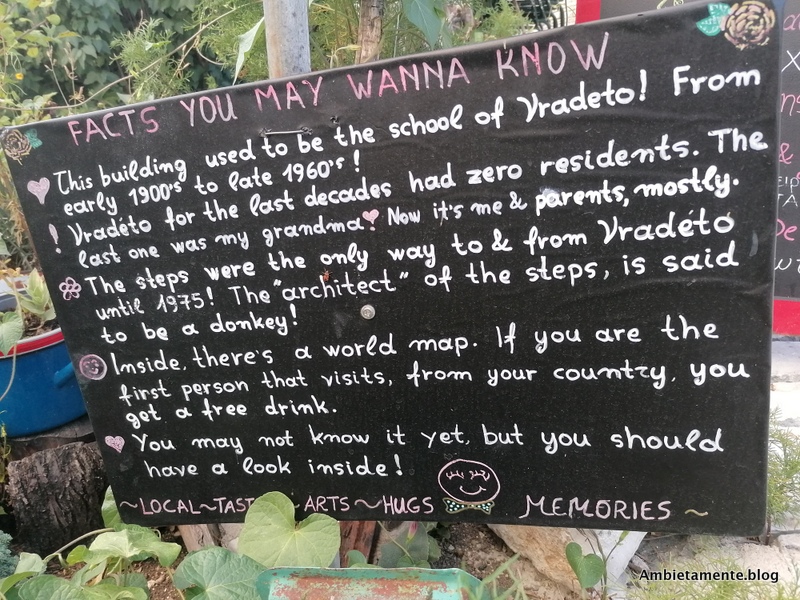 FACTS YOU MAY WANNA KNOW
This building used to be the school of Vradeto! From
early 1900's to late 1960's!
! Vradéto for the last decades had zero residents. The
last one was my grandma Now it's me & parents, mostly.
The steps were the only way to & from Vradéto
until 1975! The "architect" of the steps, is said
to be a donkey!
Inside, there's a world map. If you are the
first person that visits, from your country, you
get a free drink.
You may not know it yet, but you should
have a look inside!
~LOCAL~ ~ARTS~HUGS MEMORIES~
Ambietamente.blog